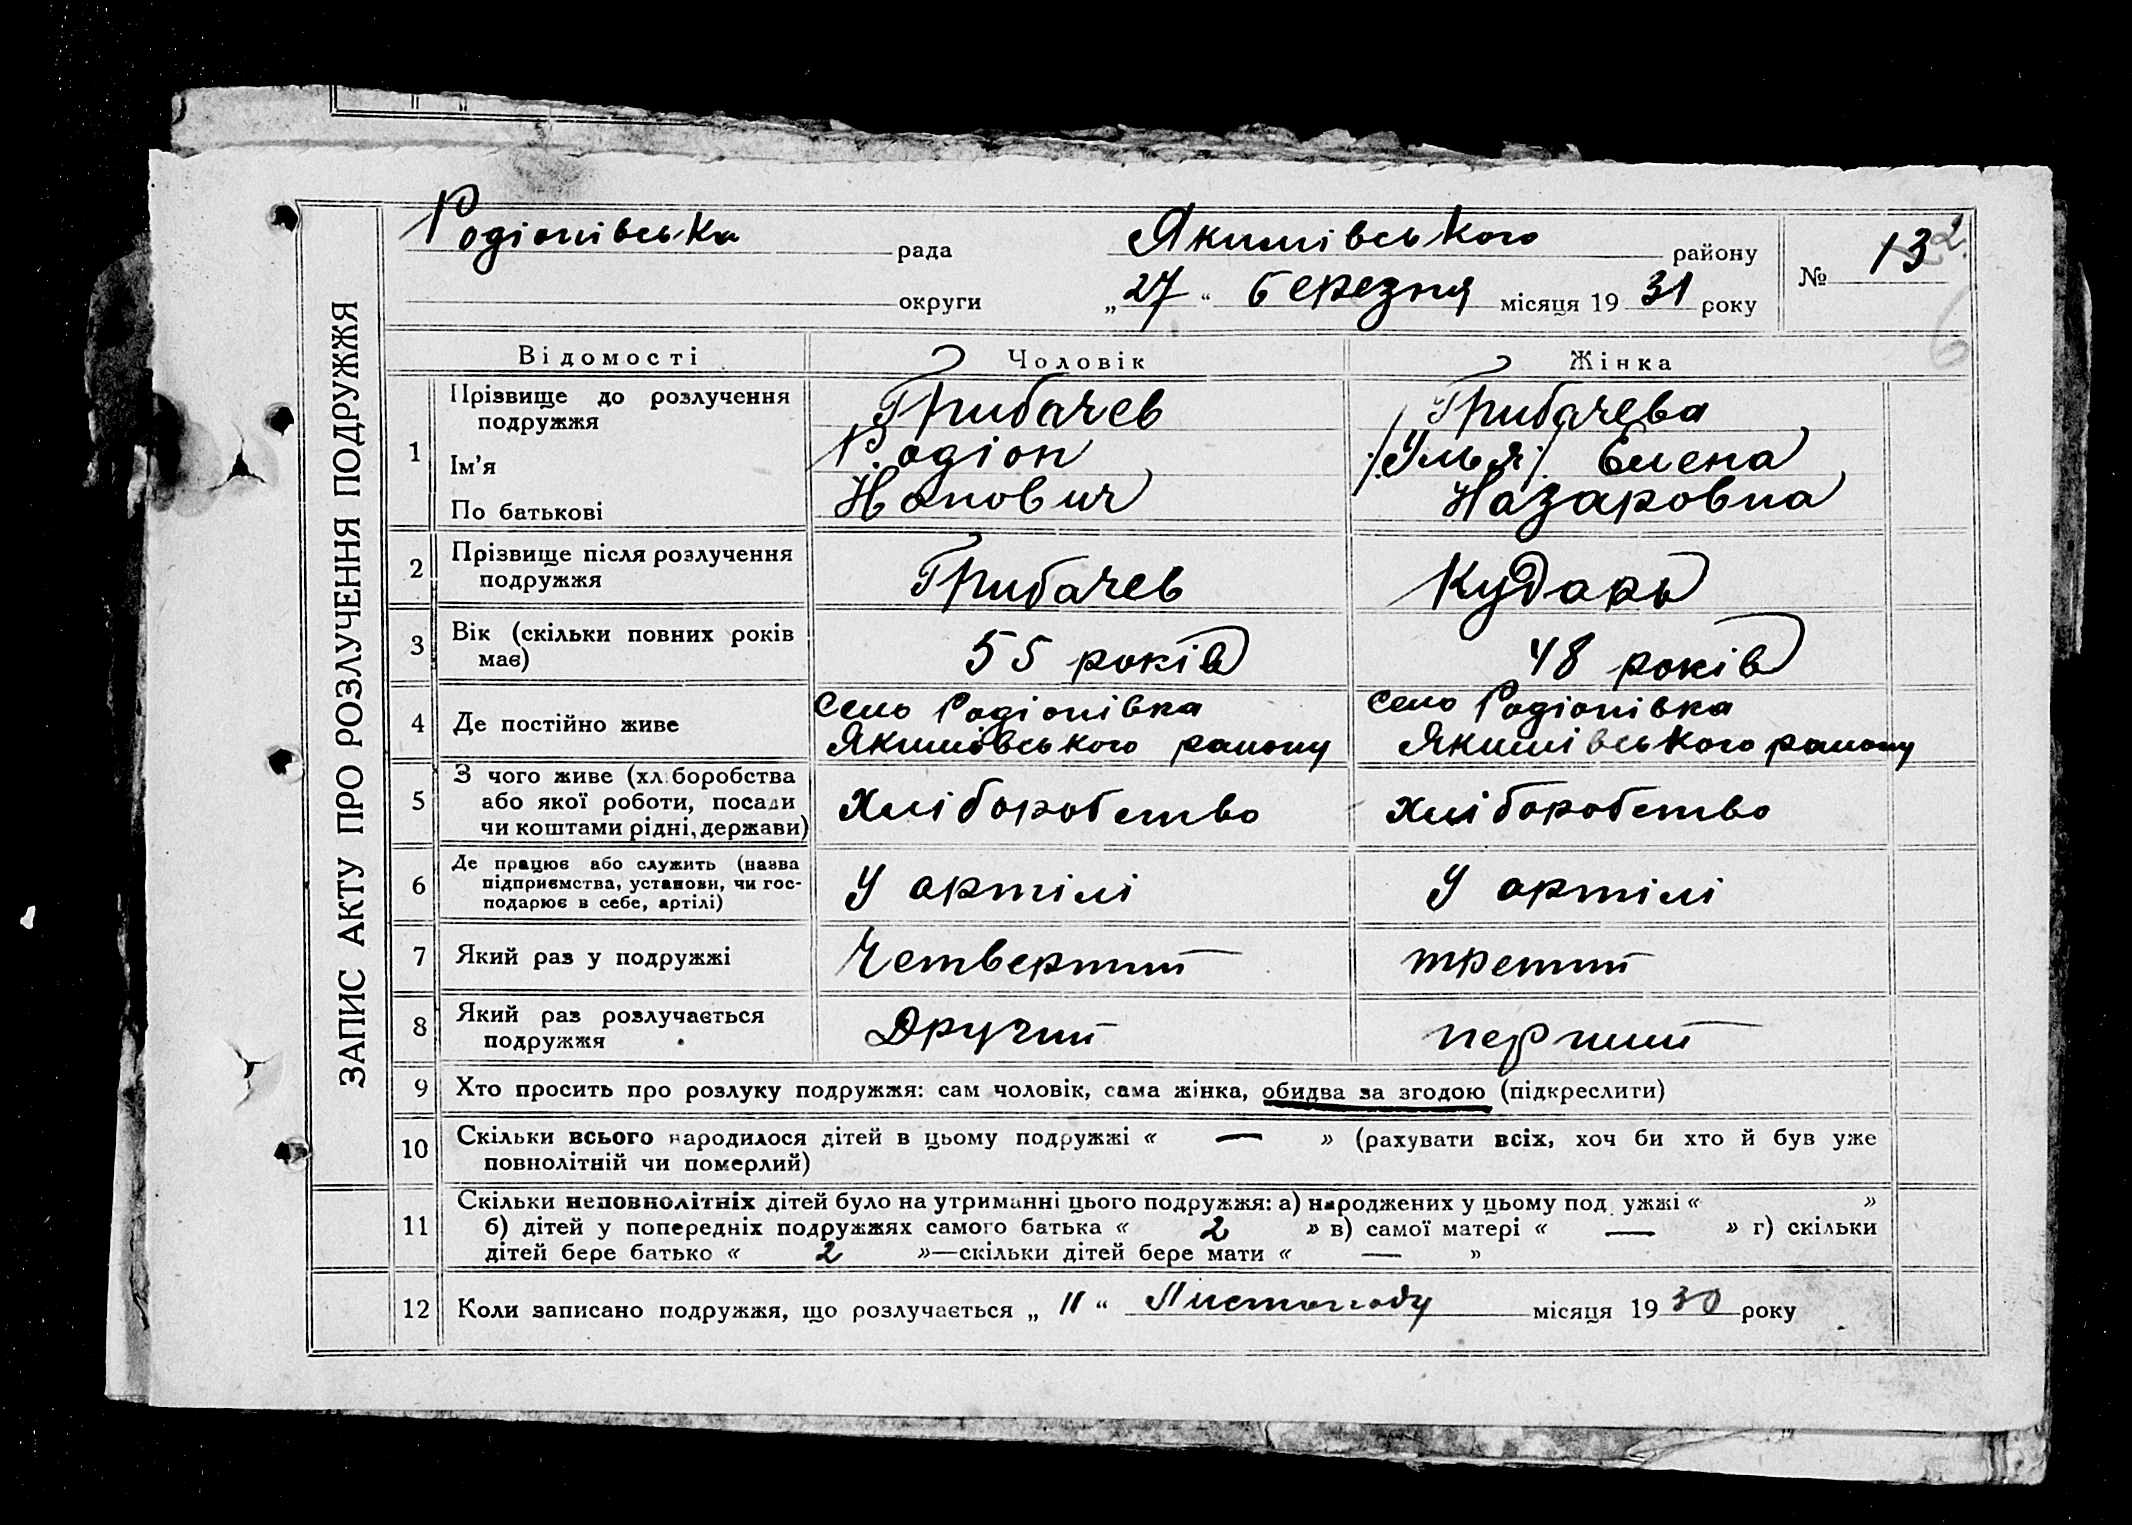 ЗАПИС АКТУ ПРО РОЗЛУЧЕННЯ ПОДРУЖЖЯ
Родіонівська рада Якимівського району № 13
округи „27“ березня місяця 1931 року
Відомості Чоловік Жінка
1 Прізвище до розлучення подружжя Грибачев Грибачева
Ім'я Родіон /Улья/ Елена
По батькові Назаровна
2 Прізвище після розлучення подружжя Грибачев Кударь
3 Вік (скільки повних років має) 55 років 48 років
4 Де постійно живе село Родіонівка Якимівського району село Родіонівка Якимівського району
5 З чого живе (хліборобства
або якої роботи, посади
чи коштами рідні, держави) Хліборобство хліборобство
6 Де працює або служить (назва
підприємства, установи, чи гос-
подарює в себе, артілі) У артілі У артілі
7 Який раз у подружжі Четвертий третий
8 Який раз розлучається подружжя Другий перший
9 Хто просить про розлуку подружжя: сам чоловік, сама жінка, обидва за згодою (підкреслити)
10 Скільки всього народилося дітей в цьому подружжі « — » (рахувати всіх, хоч би хто й був уже
повнолітній чи померлий)
11 Скільки неповнолітніх дітей було на утриманні цього подружжя: а) народжених у цьому подружжі « »
б) дітей у попередніх подружжях самого батька « 2 » в) самої матері « — » г) скільки
дітей бере батько « 2 »—скільки дітей бере мати « — »
12 Коли записано подружжя, що розлучається „11“ Листопаду місяця 1930 року